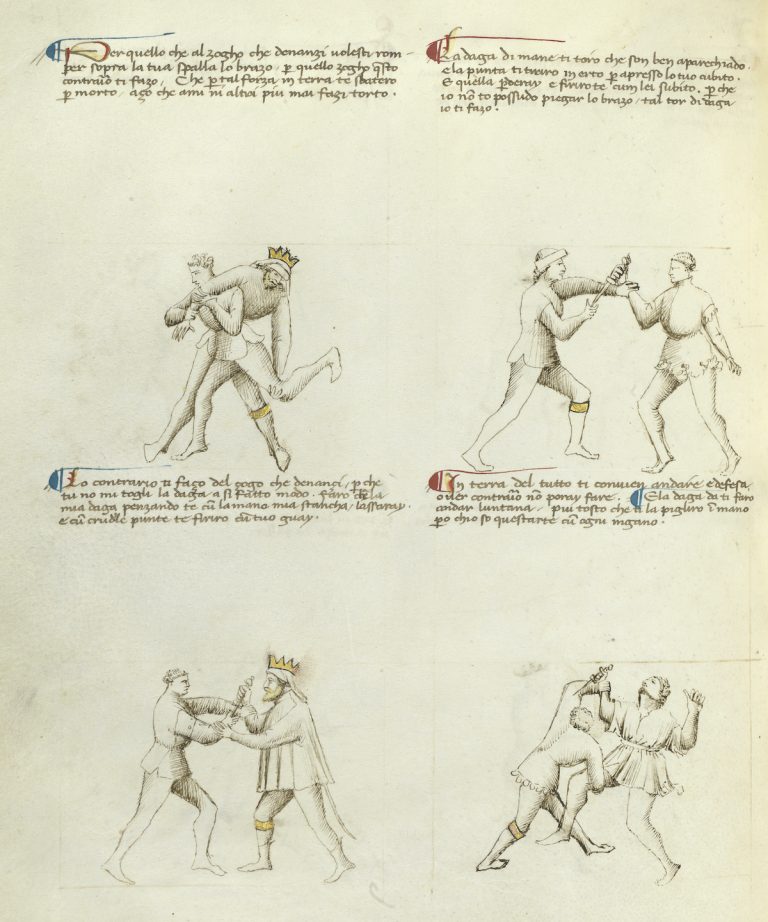 Per quello che al zogho che denanzi volesti rom-
per sopra la tua spalla lo brazo, p̱ quello zogho q̄sto
contrario ti fazo, Che p̱ tal forza in terra te sbatero
p̱ morto, aço che ami ni altri piu mai fazi torto.
La daga di mane ti torò che son ben aparechiado.
e la punta ti tiriro in erto p̱ apresso lo tuo cubito.
E quella p̱deray e feriro te cum lei subito. p̱ che
io nō to possudo piegar lo brazo, tal tor di daga
io ti fazo.
Lo contrario ti faço del çogo che denançi, p̱ che
tu no mi togli la daga a si fatto modo. faro de la
mia daga penzando te cū la mano mia stancha, lassaray.
e cū crudele punte te feriro cū tuo guay.
In terra del tutto ti convien andare e defesa,
o ver contrario nō poray fare. E la daga da ti faro
andar luntana, piu tosto che ti la pigliro ī mano
po chio so quest arte cū ogni ingano.